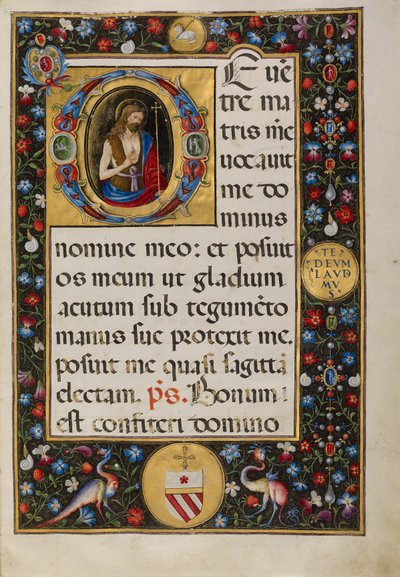 DE uē
tre ma
tris me
uocauit
me do
minus
nomine meo: et posuit
os meum ut gladium
acutum sub tegumēto
manus sue protexit me.
posuit me quasi sagittā
electam. p̄s. Bonum
est confiteri domino
TE
DEVM
LAVD
MV
S